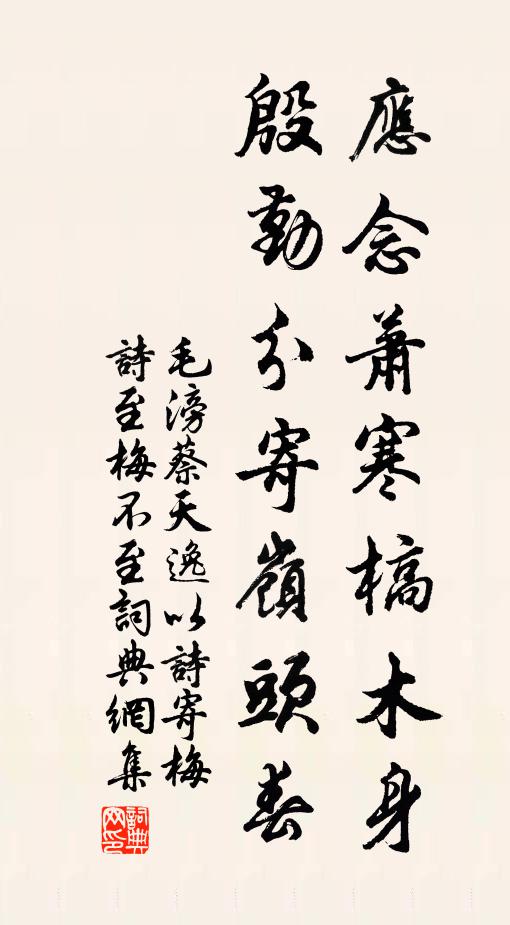 應念蕭寒槁木身
殷勤分寄嶺頭春
毛滂蔡天逸以詩寄梅
詩至梅不至詞典網集
詞典網印